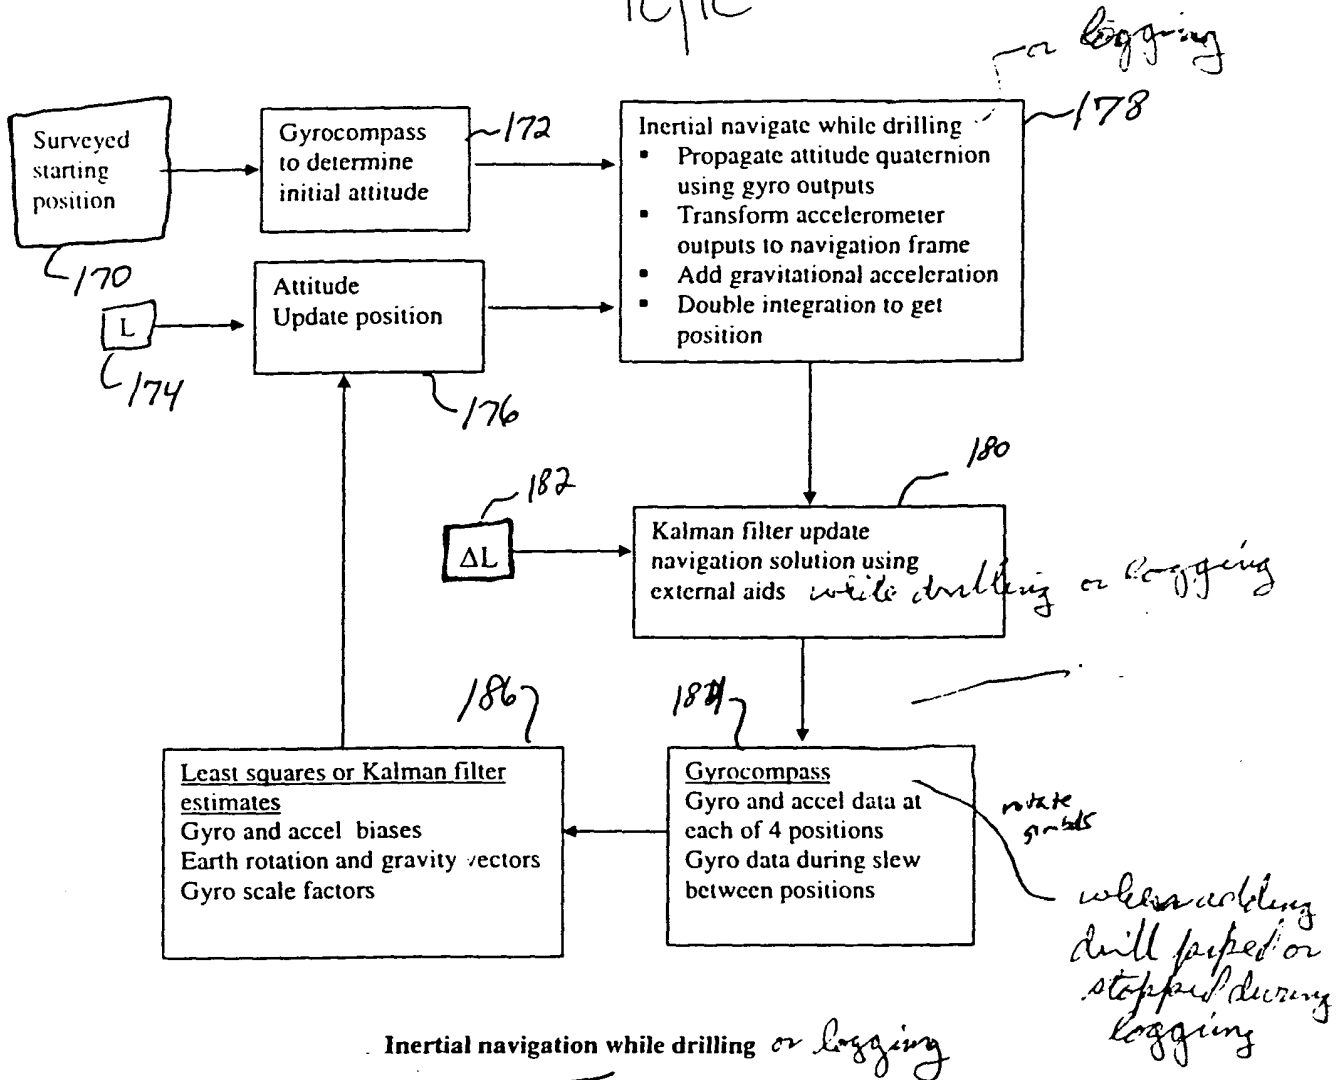 or logging
Surveyed
starting
position
170
Gyrocompass
to determine
initial attitude
172
Inertial navigate while drilling
▪ Propagate attitude quaternion
using gyro outputs
▪ Transform accelerometer
outputs to navigation frame
▪ Add gravitational acceleration
▪ Double integration to get
position
178
L
174
Attitude
Update position
176
180
182
ΔL
Kalman filter update
navigation solution using
external aids while drilling or logging
186
184
Least squares or Kalman filter
estimates
Gyro and accel biases
Earth rotation and gravity vectors
Gyro scale factors
Gyrocompass
Gyro and accel data at
each of 4 positions
Gyro data during slew
between positions
rotate
gimbals
when adding
drill piped or
stopped during
logging
Inertial navigation while drilling or logging